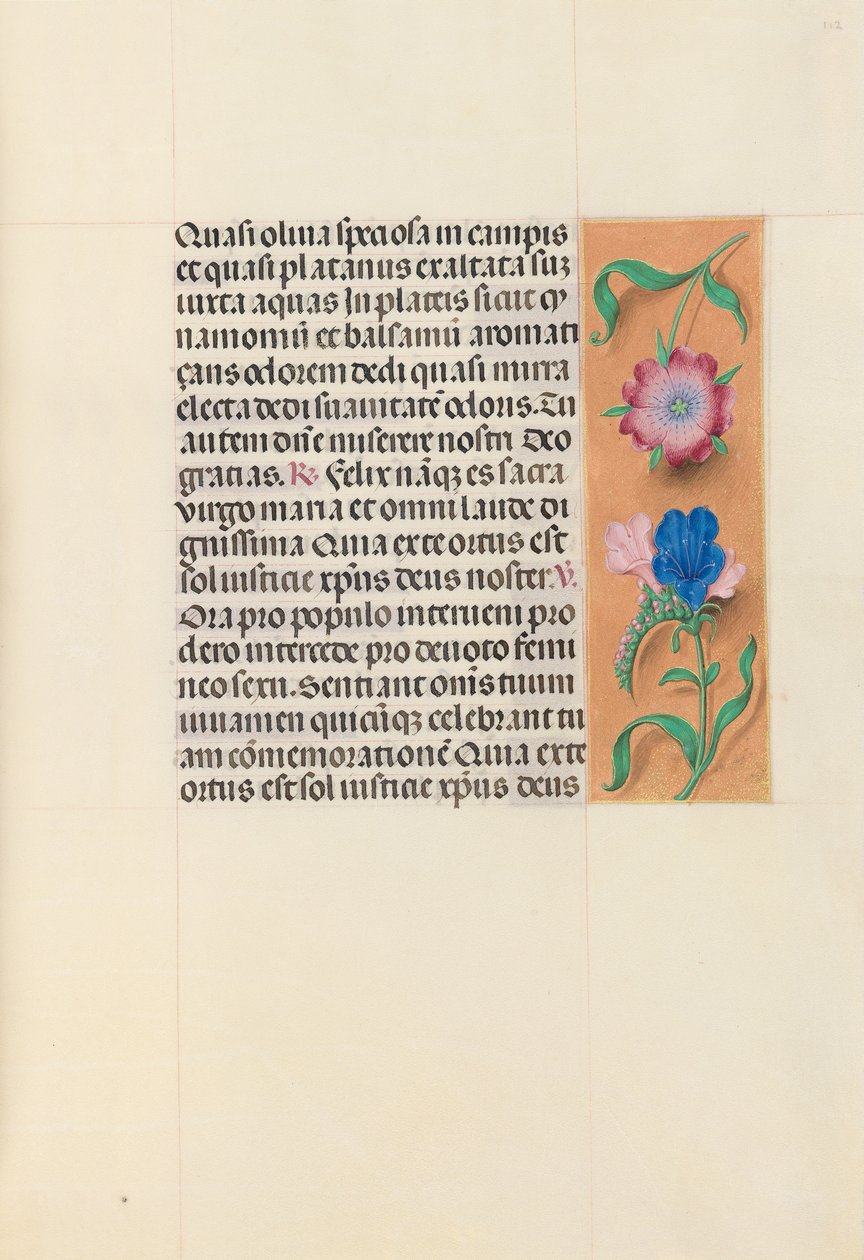 112
Quasi oliua speciosa in campis
et quasi platanus exaltata suꝫ
iuxta aquas In plateis sicut cy
namomū et balsamū aromati
çans odorem dedi quasi mirra
electa dedi suauitatē odoris. Tu
autem dn̄e miserere nostri Deo
gratias. ℟. Felix nāqꝫ es sacra
virgo maria et omni laude di
gnissima Quia ex te ortus est
sol iusticie xp̄us deus noster. ℣.
Ora pro populo interueni pro
clero intercede pro deuoto femi
neo sexu. Sentiant om̄s tuum
iuuamen quicūqꝫ celebrant tu
am cōmemorationē Quia ex te
ortus est sol iusticie xp̄us deus